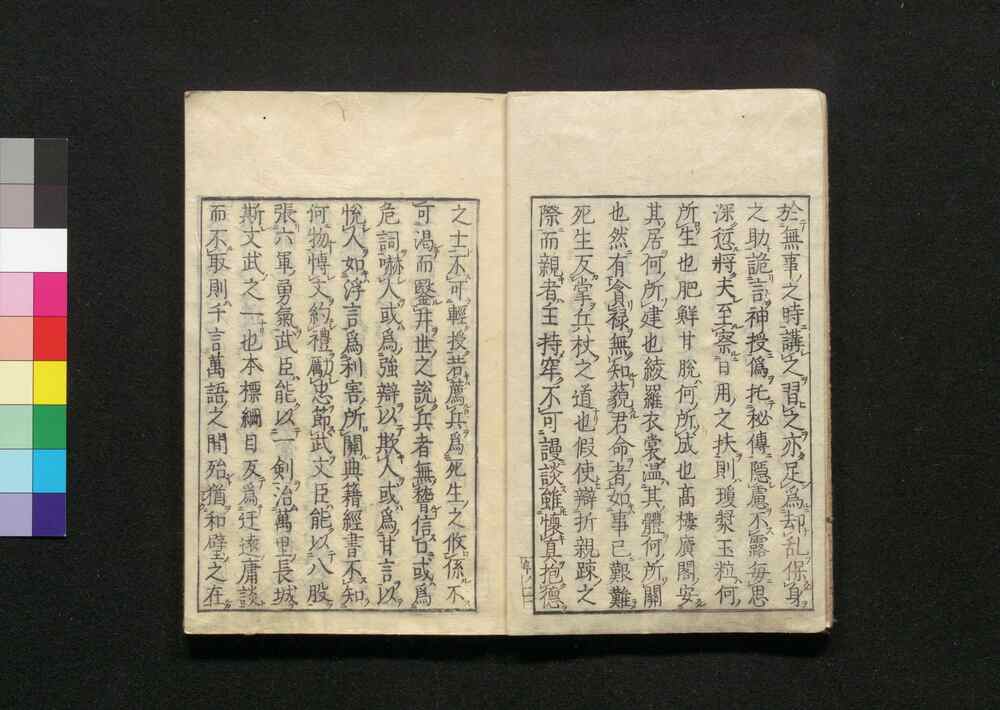 於無事之時講之習之亦足為却乱保身
之助詭言神授偽托秘傳隠慮不露毎思
深愆將夫至察日用之扶則瓊漿玉粒何
所生也肥鮮甘脆何所成也髙楼廣閣安
其居何所建也綾羅衣裳温其體何所關
也然有貪禄無知藐君命者如事已艱難
死生反掌兵杖之道也假使辯折親踈之
際而親者主持窂不可謾談雖懷真抱德
之士不可輕授若薦兵為死生之攸係不
可渇而鑿井世之說兵者無瞥信口或為
危詞嚇人或為強辯以欺人或為甘言以
悅人如浮言為利害所關典籍經書不知
何物愽文約禮勵忠節武丈臣能以八股
張六軍勇氣武臣能以一剣治萬里長城
斯文武之一也本標綱目反為迂遠庸談
而不取則千言萬語之間殆猶和壁之在